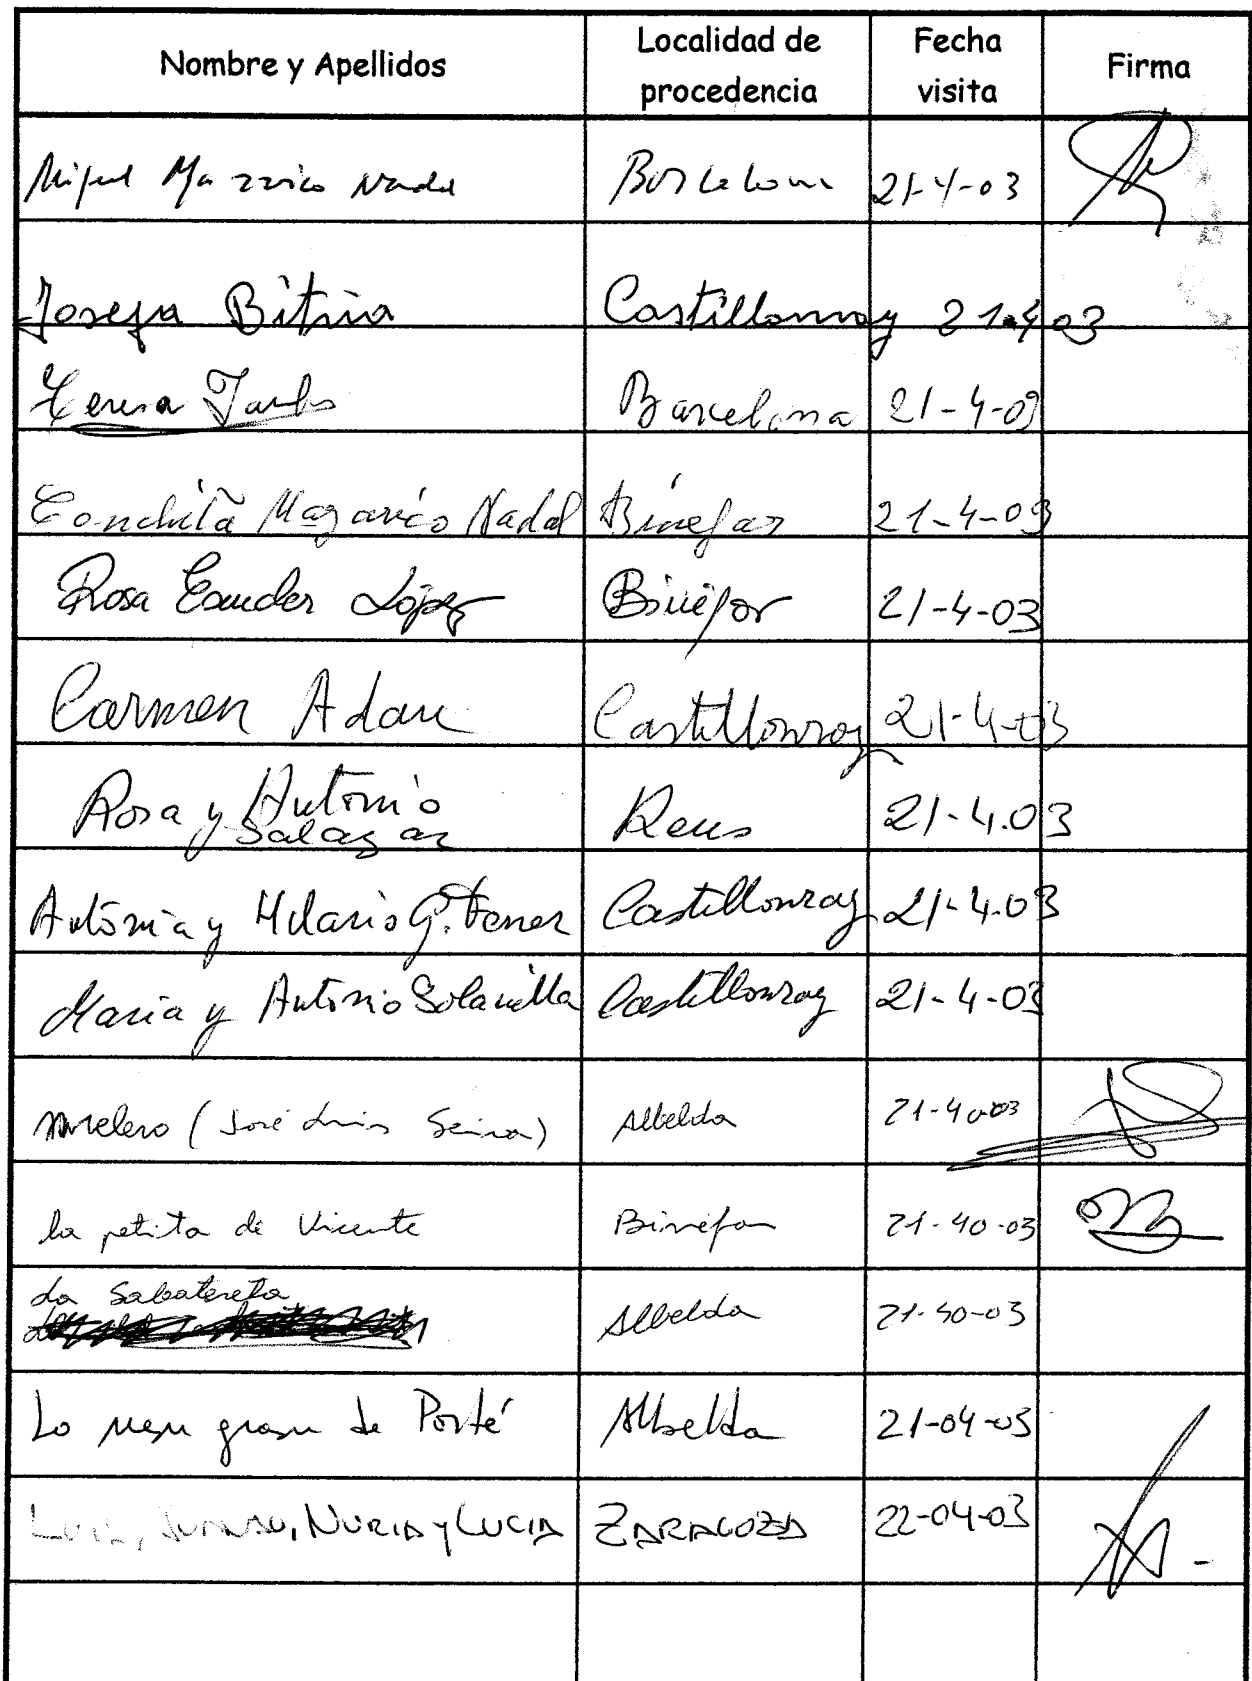 Nombre y Apellidos Localidad de procedencia Fecha visita Firma
Miguel Mazarico Nadal Barcelona 21-4-03
Josefa Bitria Castillonroy 21.4.03
Teresa Barcelona 21-4-03
Conchita Mazarico Nadal Binefar 21-4-03
Rosa López Binéfar 21-4-03
Carmen Adan Castillonroy 21-4-03
Rosa y Antonio Salazar Reus 21-4.03
Antonia y Hilario G. Castillonroy 21-4.03
Maria y Antonio Solanilla Castillonroy 21-4-03
(José Luis) Albelda
la petita de Vicente Binefar 21-40-03
La Sabatereta
Albelda 21-40-03
Lo de Porté Albelda 21-04-03
Luis, NURIA y LUCIA ZARAGOZA 22-04-03